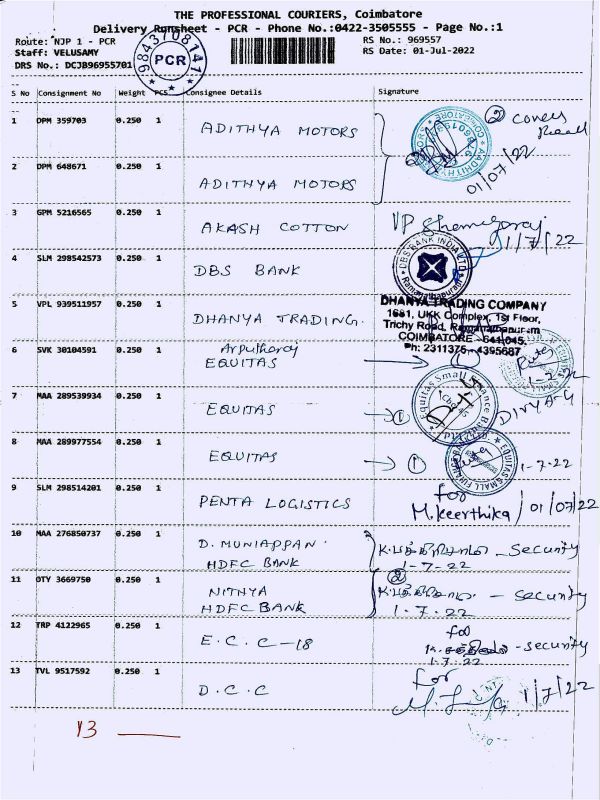 THE PROFESSIONAL COURIERS, Coimbatore
Delivery Runsheet - PCR - Phone No.:0422-3505555 - Page No.:1
Route: NJP 1 - PCR
RS No.: 969557
Staff: VELUSAMY
RS Date: 01-Jul-2022
DRS No.: DCJB96955701
9843708141
PCR
S No Consignment No Weight PCS Consignee Details Signature
1 DPM 359703 0.250 1 ADITHYA MOTORS
2 covers
01/07/22
2 DPM 648671 0.250 1 ADITHYA MOTORS
3 GPM 5216565 0.250 1 AKASH COTTON VP
1/7/22
4 SLM 298542573 0.250 1 DBS BANK
DBS BANK INDIA LTD
5 VPL 939511957 0.250 1 DHANYA TRADING.
DHANYA TRADING COMPANY
1681, UKK Complex, 1st Floor,
Trichy Road, Ramanathapuram
COIMBATORE - 641 045.
Ph: 2311375, 4395687
6 SVK 30104591 0.250 1 Arputharaj
EQUITAS
1-7-22
7 MAA 289539934 0.250 1 EQUITAS → 1 DIVYA-G
Equitas Small Finance Bank Ltd
8 MAA 289977554 0.250 1 EQUITAS → 1 1-7-22
9 SLM 298514201 0.250 1 PENTA LOGISTICS for
M.Keerthika / 01/07/22
10 MAA 276850737 0.250 1 D. MUNIAPPAN.
HDFC BANK
- Security
1-7-22
11 OTY 3669750 0.250 1 NITHYA
HDFC BANK
2
- Security
1-7-22
12 TRP 4122965 0.250 1 E.C.C-18 for
- security
1-7-22
13 TVL 9517592 1 0.250 D.C.C for
1/7/22
13